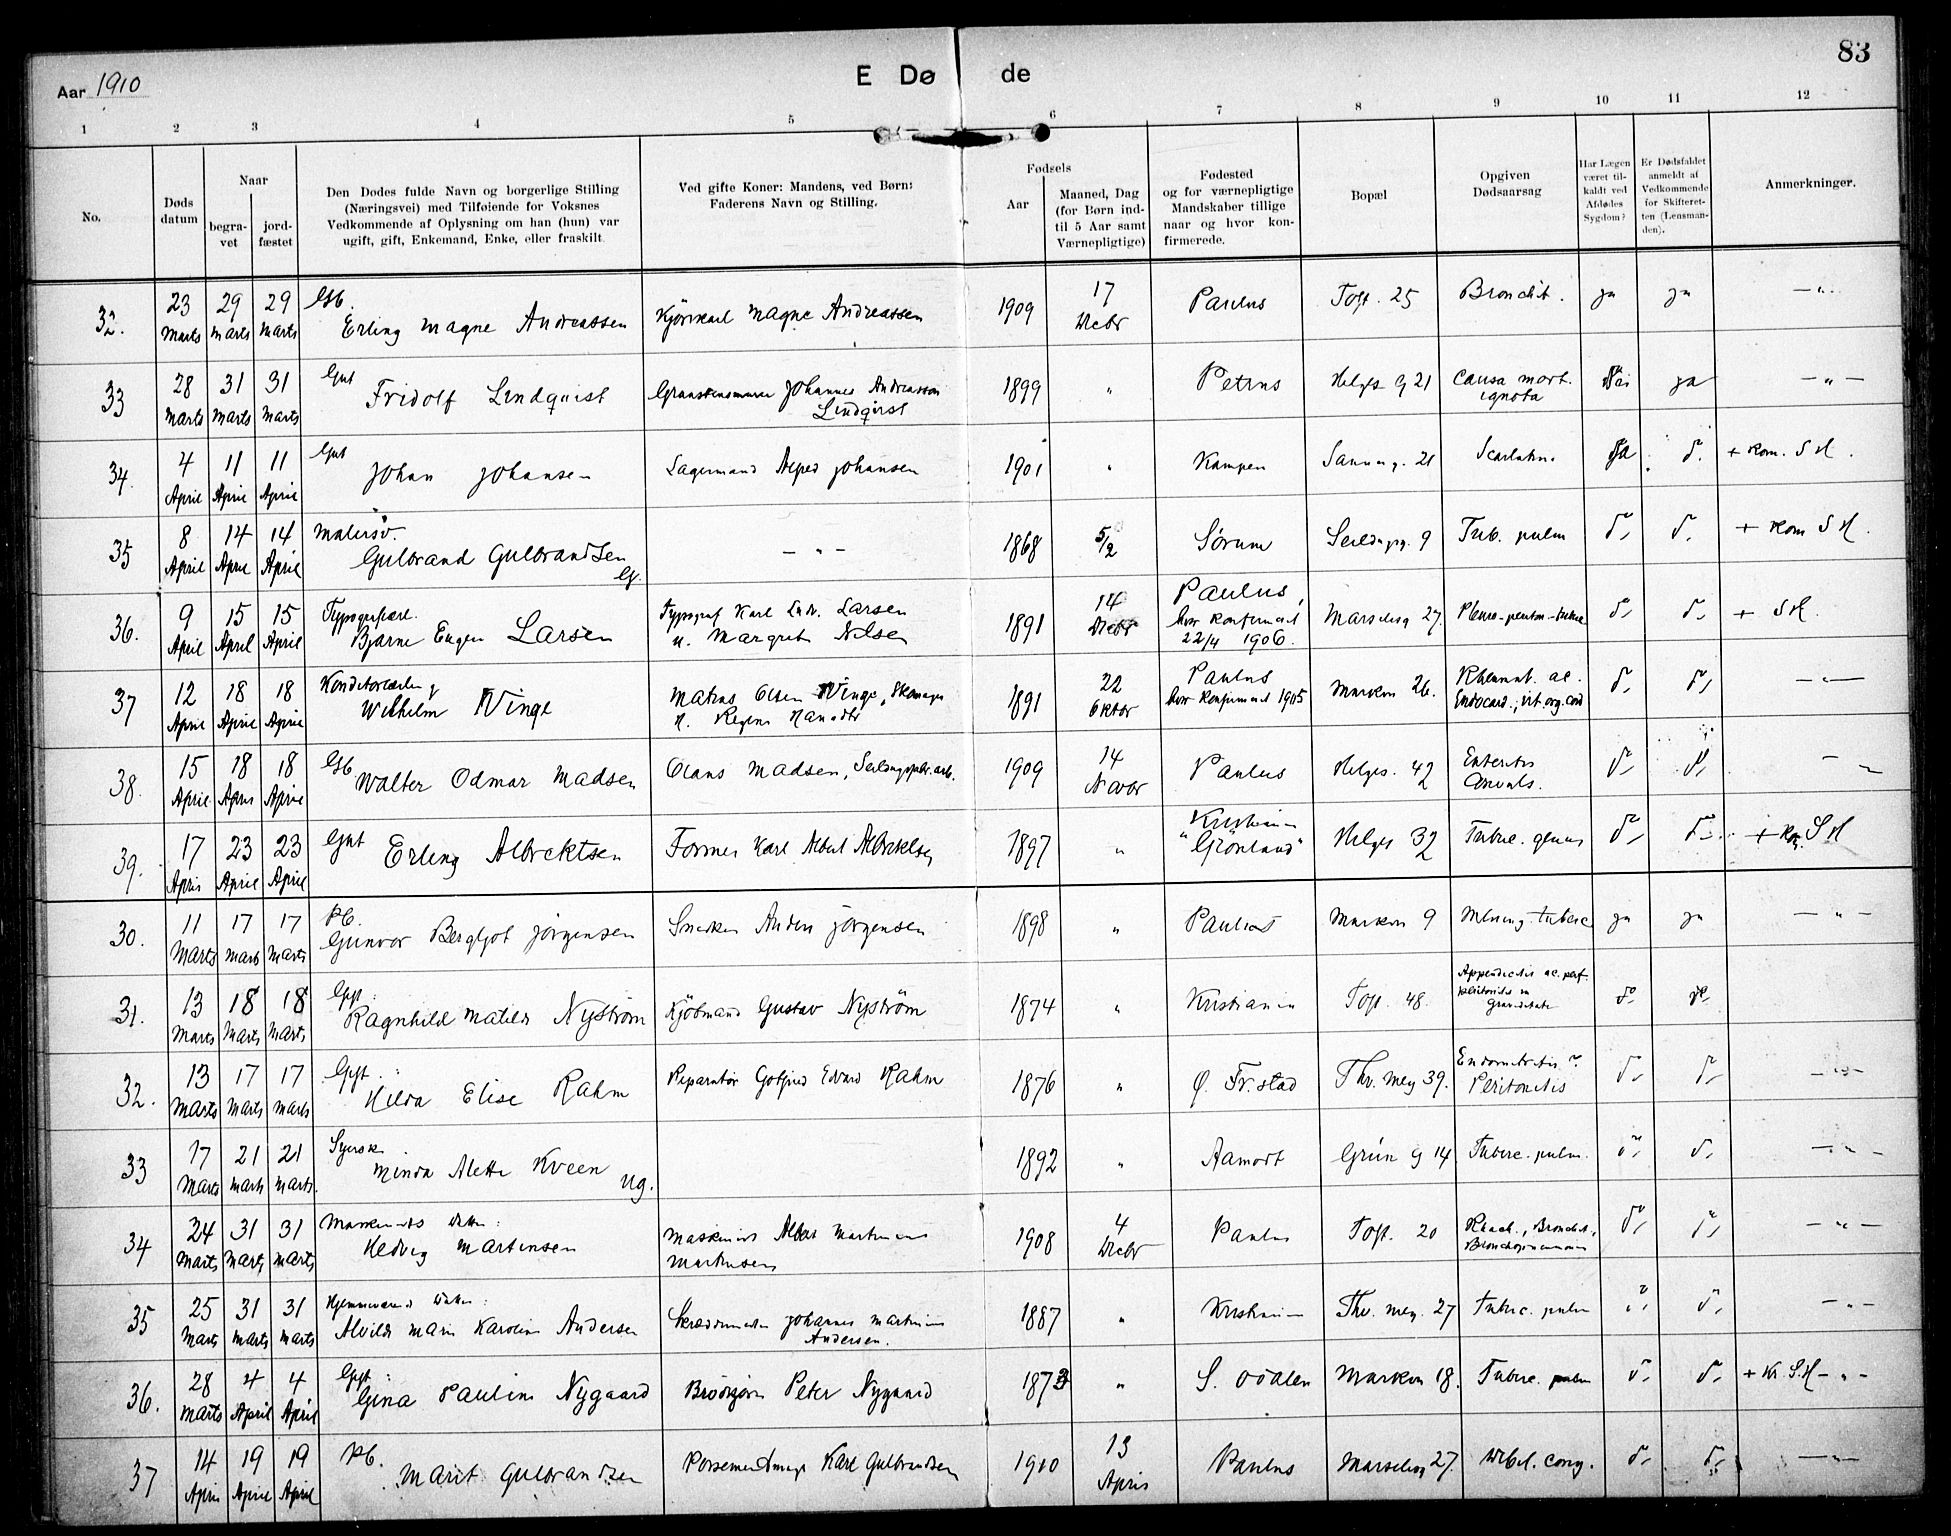 83
Aar 1910
E Dø de
1 2 3 4 5 6 7 8 9 10 11 12
No.
Døds datum
Naar
begra- vet
jord- fæstet
Den Dødes fulde Navn og borgerlige Stilling
(Næringsvei) med Tilføiende for Voksnes
Vedkommende af Oplysning om han (hun) var
ugift, gift, Enkemand, Enke, eller fraskilt.
Ved gifte Koner: Mandens, ved Børn:
Faderens Navn og Stilling.
Fødsels
Aar
Maaned, Dag
(for Børn ind-
til 5 Aar samt
Værnepligtige)
Fødested
og for værnepligtige
Mandskaber tillige
naar og hvor kon-
firmerede.
Bopæl
Opgiven
Dødsaarsag
Har Lægen
været til-
kaldt ved
Afdødes
Sygdom?
Er Dødsfaldet
anmeldt af
Vedkommende
for Skifteret-
ten (Lensman-
den).
Anmerkninger.
32. 23 Marts 29 Marts 29 Marts Gb. Erling Magne Andreassen Kjørekarl Magne Andreassen 1909 17 Decbr Paulus Toft. 25 Bronchit. ja ja — " —
33 28 Marts 31 Marts 31 Marts Gut Fridolf Lindqvist Johannes Andreasson Lindqvist 1899 " Petrus Helgs. g 21 Causa mort. ignota Nei ja — " —
34. 4 April 11 April 11 April Gut Johan Johansen Lagermand Johansen 1901 " Kampen 21 Scarlatina Ja d. + Kom. S H.
35 8 April 14 April 14 April Malersv. Gulbrand Gulbrandsen G. — " — 1868 5/2 Sørum Seildugsg. 9 Tub. pulm d. d. + Kom S H.
36. 9 April 15 April 15 April Bjarne Eugen Larsen Typograf Karl Ludv. Larsen u. Margrete Nilsen 1891 14 Decbr Paulus, hvor konfirmeret 22/4 1906. Marselisg 27. d. d. + S H.
37 12 April 18 April 18 April Konditorlærling Wilhelm Winge Olsen Winge, Skomager 1891 22 Oktbr Paulus hvor konfirmeret 1905 Markvn 26. Rheumat. ac. Endocard., vit. org. cord d. d. — " —
38. 15 April 18 April 18 April Gb Walter Odmar Madsen Olaus Madsen, 1909 14 Novbr Paulus Helges. 42 Enteritis Convuls. d. d. — " —
39. 17 April 23 April 23 April Gut Erling Albrektsen Former Karl Albert Albrektsen 1897 " Kristiania "Grönland" Helges 32 d. d. + Kom. S H
30. 11 Marts 17 Marts 17 Marts Pb. Gunvor Bergljot Jörgensen Snekker Anders Jörgensen 1898 " Paulus Markvn 9 Mening. tuberc ja ja — " —
31. 13 Marts 18 Marts 18 Marts Gift: Ragnhild Matilde Nyström Kjöbmand Gustav Nyström 1874 " Kristiania Toft. 48. Appendicitis ac. perf. Peritonitis Graviditate d. d.
32. 13 Marts 17 Marts 17 Marts Gift: Hilda Elise Rahm Reparatör Gotfried Edvard Rahm 1876 " Ø. Fr.stad Thv. mey 39. Endometritis? Peritonitis d. d. — " —
33 17 Marts 21 Marts 21 Marts Syersk. Minda Alette Kveen ug. 1892 " Aamodt Grün g 14 Tuberc. pulm. d. d. — " —
34 24 Marts 31 Marts 31 Marts Maskinists datter: Hedvig Martinsen Maskinist Albert Martinius Martinsen 1908 4 Decbr Paulus Toft. 20 Rhach., Bronchit., Bronchopneumoni d. d. — " —
35 25 Marts 31 Marts 31 Marts Hjemmeværende datter: Alvilde Marie Karoline Andersen Skræddermester Johannes Martinius Andersen. 1887 " Kristiania Thv. mey. 27 Tuberc. pulm d. d. — " —
36. 28 Marts 4 April 4 April Gift: Gina Pauline Nygaard Peter Nygaard 1873 " S. Odalen Markvn 18. Tuberc. pulm d. d. + Kr. S.H — " —
37 14 April 19 April 19 April Pb. Marit Gulbrandsen Karl Gulbrandsen 1910 13 April Paulus Marselisg 27. Debil. cong. d. d. — " —